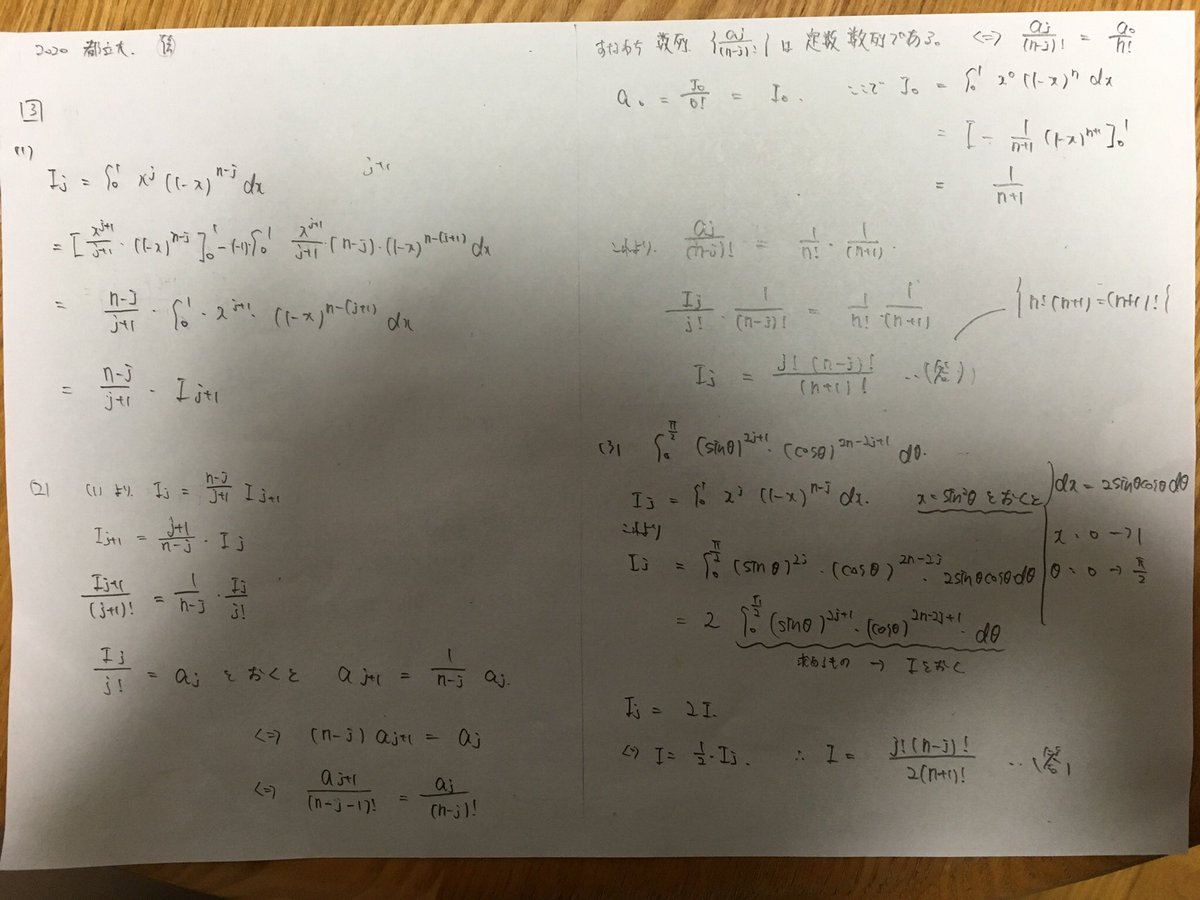 2020 都立大.
[3]
(1)
j+1
I_j = ∫_0^1 x^j (1-x)^{n-j} dx
= [x^{j+1}/(j+1) · (1-x)^{n-j}]_0^1 - (-1)·∫_0^1 x^{j+1}/(j+1) · (n-j) · (1-x)^{n-(j+1)} dx
= (n-j)/(j+1) · ∫_0^1 · x^{j+1} · (1-x)^{n-(j+1)} dx
= (n-j)/(j+1) · I_{j+1}
(2) (1)より I_j = (n-j)/(j+1) I_{j+1}
I_{j+1} = (j+1)/(n-j) · I_j
I_{j+1}/(j+1)! = 1/(n-j) · I_j/j!
I_j/j! = a_j とおくと a_{j+1} = 1/(n-j) a_j.
⇔ (n-j) a_{j+1} = a_j
⇔ a_{j+1}/(n-j-1)! = a_j/(n-j)!
すなわち 数列 {a_j/(n-j)!} は 定数数列である。 ⇔ a_j/(n-j)! = a_0/n!
a_0 = I_0/0! = I_0. ここで I_0 = ∫_0^1 x^0 (1-x)^n dx
= [- 1/(n+1) (1-x)^{n+1}]_0^1
= 1/(n+1)
これより. a_j/(n-j)! = 1/n! · 1/(n+1).
I_j/j! · 1/(n-j)! = 1/n! · 1/(n+1)
{n!(n+1) = (n+1)!}
I_j = j!(n-j)!/(n+1)! …(答)
(3) ∫_0^{π/2} (sinθ)^{2j+1} · (cosθ)^{2n-2j+1} dθ.
I_j = ∫_0^1 x^j (1-x)^{n-j} dx. x = sin²θ とおくと
dx = 2sinθcosθdθ
x : 0 → 1
θ : 0 → π/2
これより
I_j = ∫_0^{π/2} (sinθ)^{2j} · (cosθ)^{2n-2j} · 2sinθcosθdθ
= 2 ∫_0^{π/2} (sinθ)^{2j+1} · (cosθ)^{2n-2j+1} · dθ
求めるもの → Iとおく
I_j = 2I.
⇔ I = 1/2 · I_j. ∴ I = j!(n-j)!/2(n+1)! …(答)